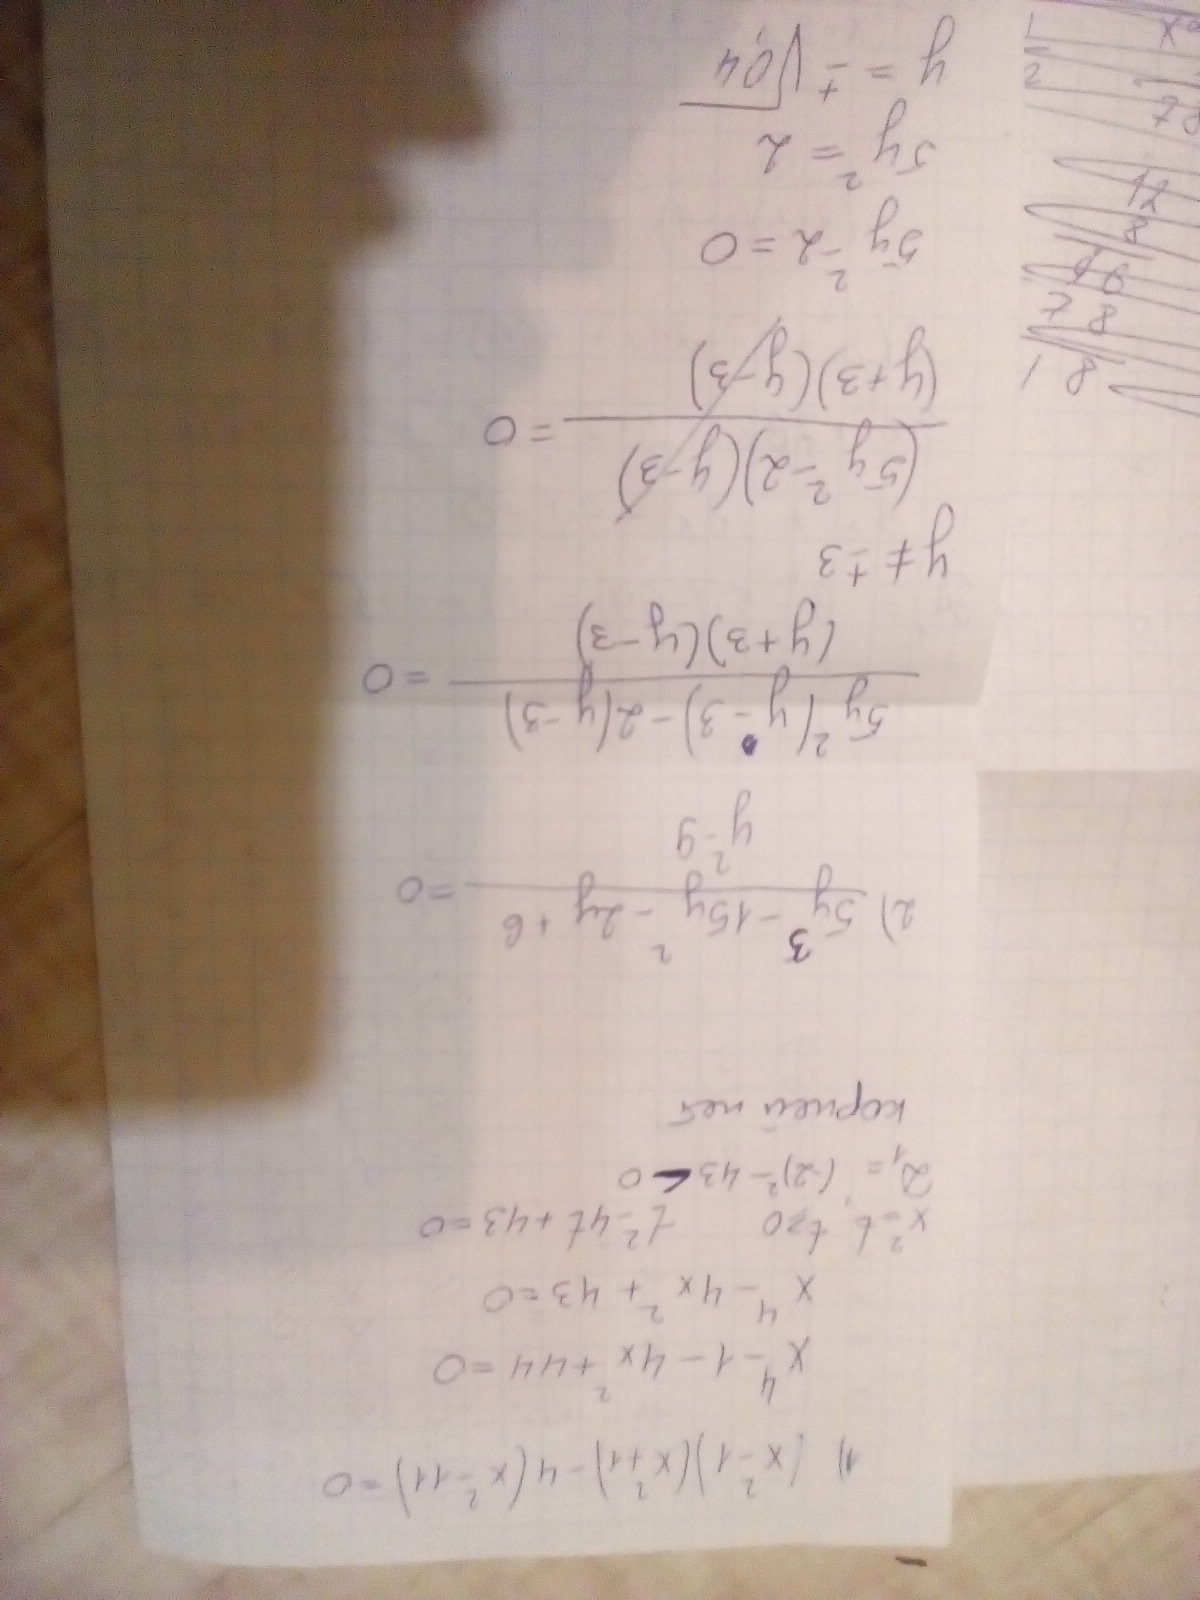 1) (x²-1)(x²+1)-4(x²-11)=0
x⁴-1-4x²+44=0
x⁴-4x²+43=0
x²=t t≥0 t²-4t+43=0
D₁=(-2)²-43<0
корней нет
2) (5y³-15y²-2y+6)/(y²-9)=0
(5y²(y-3)-2(y-3))/((y+3)(y-3))=0
y≠±3
((5y²-2)(y-3))/((y+3)(y-3))=0
5y²-2=0
5y²=2
y=±√0,4